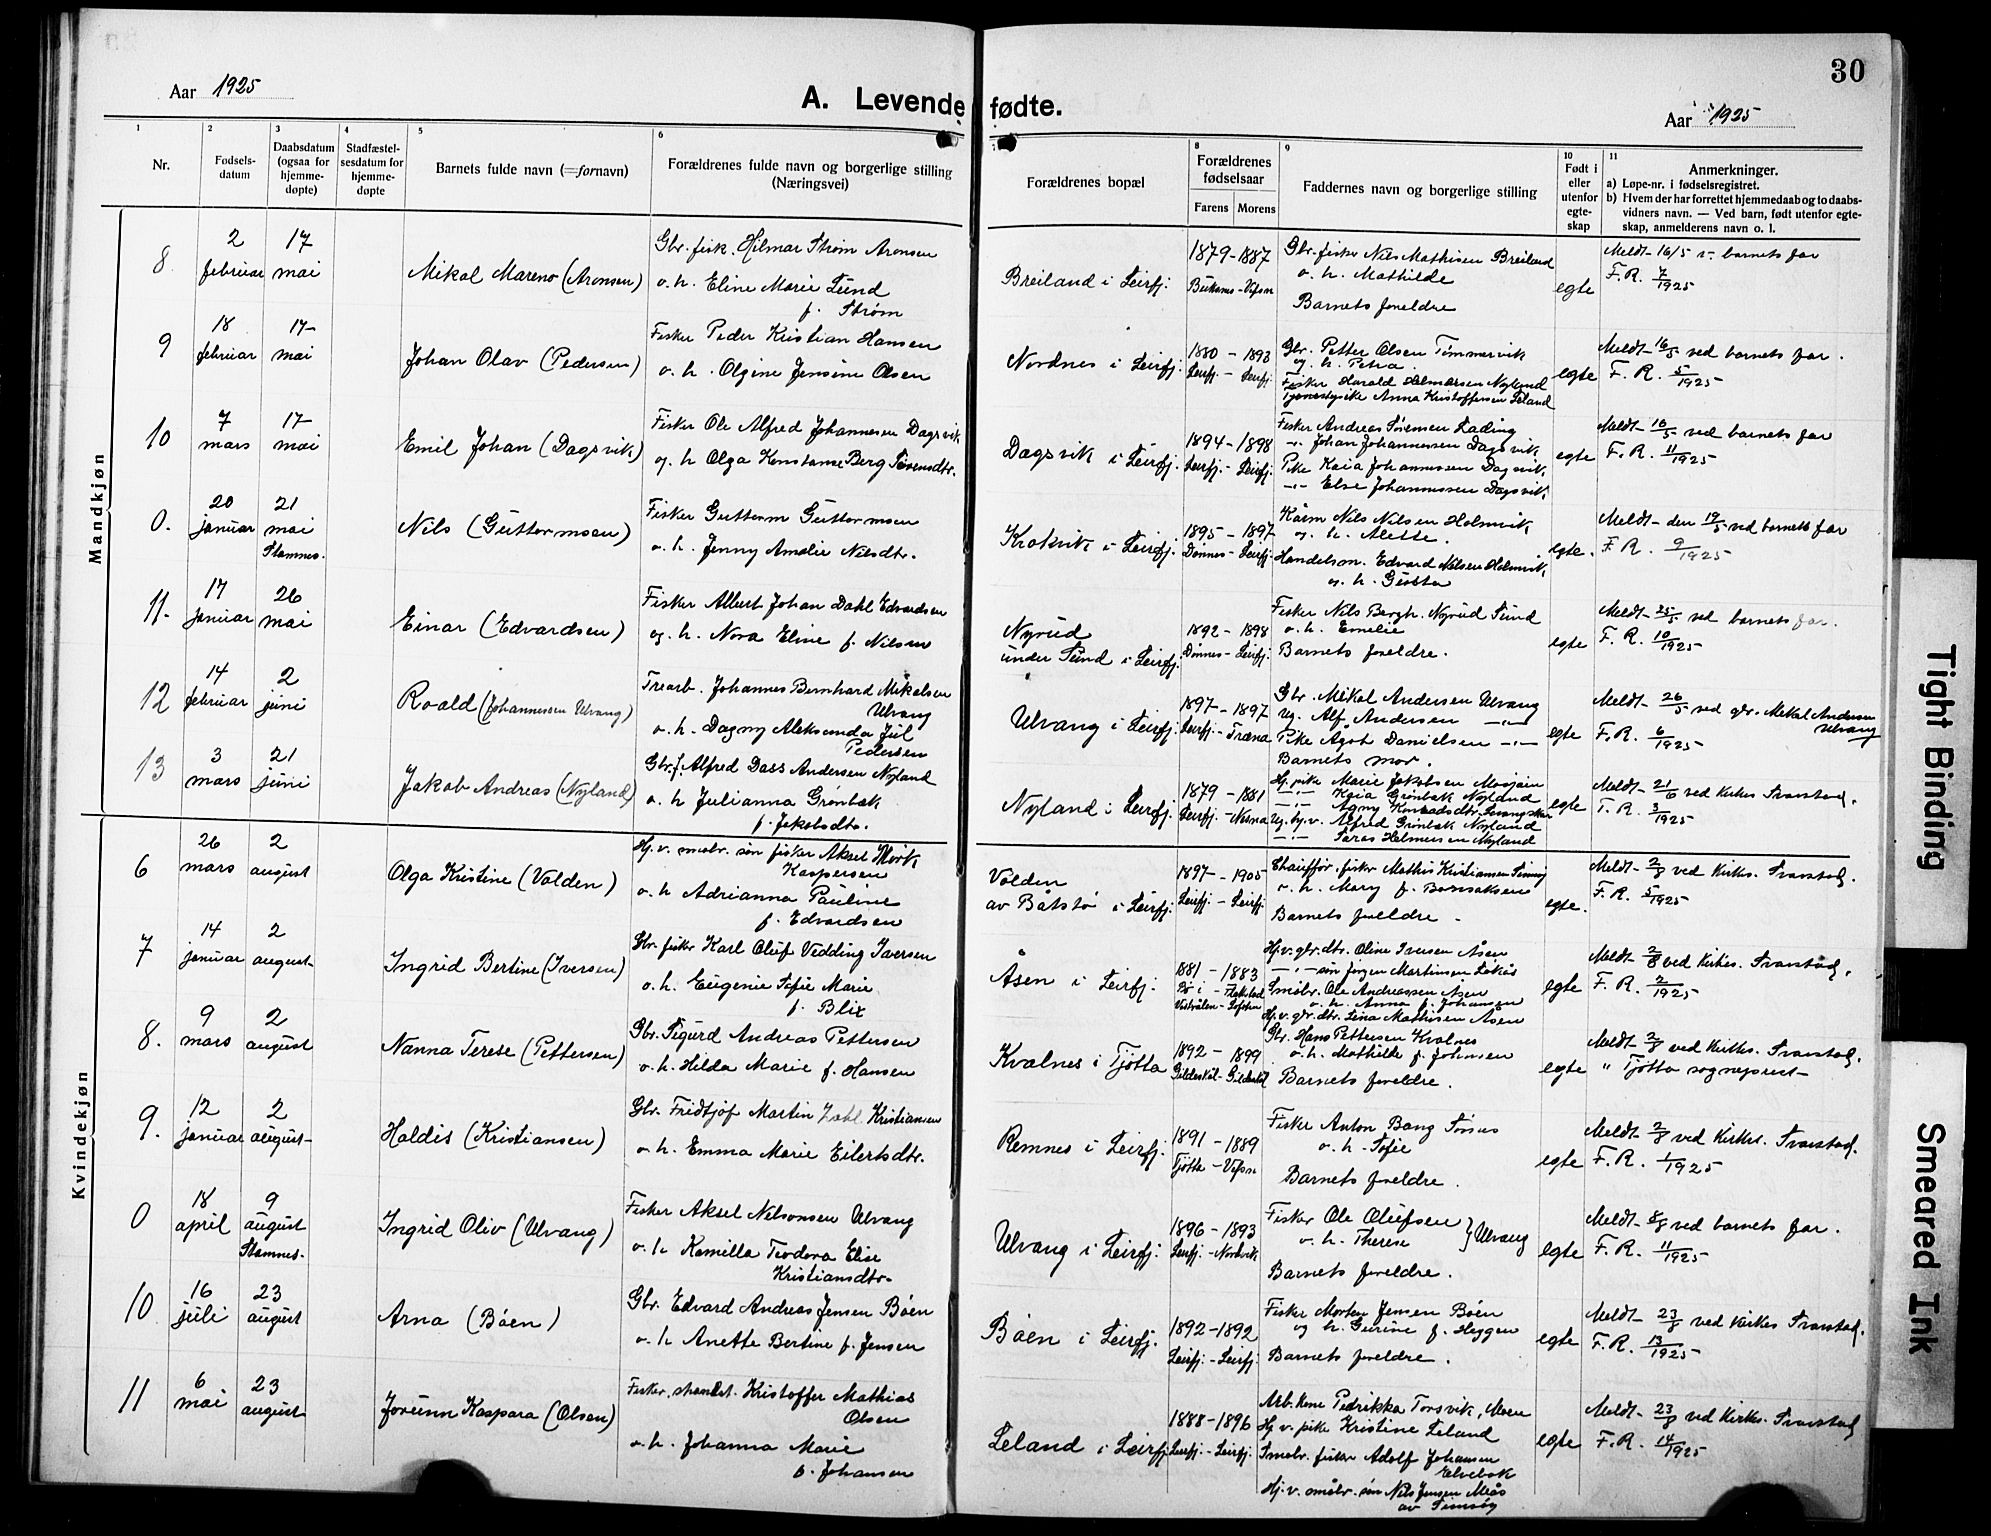 30
Aar 1925
A. Levende fødte.
Aar 1925
1 2 3 4 5 6 8 9 10 11
Nr.
Fødsels-
datum
Daabsdatum
(ogsaa for
hjemme-
døpte)
Stadfæstel-
sesdatum for
hjemme-
døpte
Barnets fulde navn (=fornavn)
Forældrenes fulde navn og borgerlige stilling
(Næringsvei)
Forældrenes bopæl
Forældrenes
fødselsaar
Farens Morens
Faddernes navn og borgerlige stilling
Født i
eller
utenfor
egte-
skap
Anmerkninger.
a) Løpe-nr. i fødselsregistret.
b) Hvem der har forrettet hjemmedaab og to daabs-
vidners navn. — Ved barn, født utenfor egte-
skap, anmelderens navn o. l.
Mandkjøn
8 2 februar 17 mai Mikal Mareno (Aronsen)
Gbr. fisk. Hilmar Strøm Aronsen
o. h. Eline Marie Lund
f. Strøm
Breiland i Leirfj. 1879-1887
Gbr. fisker Nils Mathisen Breiland
o. h. Mathilde
Barnets foreldre
egte
Meldt 16/5 v. barnets far
F. R. 7/1925
9 18 februar 17 mai Johan Olav (Pedersen)
Fisker Peder Kristian Hansen
o. h. Olgine Jensine Olsen
Nordnes i Leirfj. 1880 - 1893
Leirfj. - Leirfj.
Gbr. Petter Olsen Timmervik
og h. Petra.
Fisker Harald Helmersen Nyland
Tjenestepike Anna Kristoffersen Leland
egte
Meldt 16/5 ved barnets far.
F. R. 5/1925
10 7 mars 17 mai Emil Johan (Dagsvik)
Fisker Ole Alfred Johannesen Dagsvik
og. h Olga Konstanse Berg Sørensdtr.
Dagsvik i Leirfj. 1894 - 1898
Leirfj. - Leirfj.
Fisker Andreas Sørensen Lading
-"- Johan Johannessen Dagsvik
Pike Kaia Johannessen Dagsvik
-"- Else Johannessen Dagsvik
egte
Meldt 16/5 ved barnets far
F. R. 11/1925
0. 20 januar 21 mai Stamnes. Nils (Guttormsen)
Fisker Guttorm Guttormsen
o. h. Jenny Amalie Nilsdtr.
Krokvik i Leirfj. 1895 - 1897
Dønnes - Leirfj.
Kårm Nils Nilsen Holmvik
og. h. Alette.
Handelsm. Edvard Nilsen Holmvik
og. h. Gusta
egte.
Meldt den 19/5 ved barnets far
F. R. 9/1925
11. 17 januar 26 mai Einar (Edvardsen)
Fisker Albert Johan Dahl Edvardsen
og. h. Nora Eline f. Nilsen
Nyrud
under Sund i Leirfj. 1892 - 1898
Dønnes - Leirfj.
Fisker Nils Bergh. Nyrud Sund
o. h. Emelie
Barnets foreldre.
egte
Meldt 25/5 ved barnets far.
F. R. 10/1925
12 14 februar 2 juni Roald (Johannessen Ulvang)
Trearb. Johannes Bernhard Mikalsen
Ulvang
o. h. Dagny Aleksanda Jul
Pedersen
Ulvang i Leirfj. 1897 - 1897
Leirfj. - Træna
Gbr. Mikal Andersen Ulvang
Ug. Alf Andersen -"-
Pike Agot Danielsen -"-
Barnets mor.
egte
Meldt 26/5 ved gbr. Mikal Andersen
Ulvang
F. R. 6/1925
13 3 mars 21 juni Jakob Andreas (Nyland)
Gbr. f. Alfred Dass Andersen Nyland
o. h Julianna Grønbæk
f. Jakobsdtr.
Nyland i Leirfj. 1879 - 1881
Leirfj. - Nesna
Hj. pike Marie Jakobsen Mosjøen
-"- Kaia Grønbæk Nyland
-"- Agny Konradsdtr.
Ug. Alfred Grønbæk Nyland
-"- Helmersen Nyland
egte
Meldt 21/6 ved Kirkes. Svarstad.
F. R. 3/1925
Kvindekjøn
6 26 mars 2 august Olga Kristine (Volden)
Hj. v. småbr. søn fisker Aksel Mørk
Kaspersen
o. h Adrianna Pauline
f. Edvardsen
Volden
av Båtstø i Leirfj. 1897 - 1905
Leirfj. - Leirfj.
Chauffør fisker Mathis Kristiansen
o. h. Mary f.
Barnets foreldre
egte.
Meldt 2/8 ved Kirkes. Svarstad.
F. R. 5/1925
7 14 januar 2 august Ingrid Bertine (Iversen)
Gbr. fisker Karl Oluf Vedding Iversen
o. h. Eugenie Sofie Marie
f. Blix
Åsen i Leirfj. 1881 - 1883
Bø i - Flakstad
Vesterålen - Lofoten
Hj. v. gbr. dtr. Oline Iversen Åsen
-"- søn Jørgen Martinsen Løkås
Småbr. Ole Andreassen Åsen
o. h. Anna f. Johansen
Hj. v. gbr. dtr. Lina Mathisen Åsen
egte
Meldt 2/8 ved Kirkes. Svarstad.
F. R. 2/1925
8. 9 mars 2 august Nanna Terese (Pettersen)
Gbr. Sigurd Andreas Pettersen
o. h. Hilda Marie f. Hansen
Kvalnes i Tjøtta 1892 - 1899
Gildeskål - Gildeskål
Gbr. Hans Pettersen Kvalnes
o. h. Mathilde f. Johansen
Barnets foreldre.
egte
Meldt 2/8 ved Kirkes. Svarstad.
" Tjøtta sogneprest
9. 12 januar 2 august Haldis (Kristiansen)
Gbr. Fridtjof Martin Zahl Kristiansen
o. h. Emma Marie Eilertsdtr.
Remnes i Leirfj. 1891 - 1889
Tjøtta - Vefsn
Fisker Anton Bang
o. h. Sofie
Barnets foreldre.
egte
Meldt 2/8 ved Kirkes. Svarstad.
F. R. 1/1925
0 18 april 9 august Stamnes. Ingrid Oliv (Ulvang)
Fisker Aksel Nilsonsen Ulvang
o. h Kamilla Teodora Elise
Kristiansdtr.
Ulvang i Leirfj. 1896 - 1893
Leirfj. - Nordvik
Fisker Ole Olufsen
o. h. Therese } Ulvang
Barnets foreldre.
egte
Meldt 8/8 ved barnets far.
F. R. 11/1925
10 16 juli 23 august Arna (Båen)
Gbr. Edvard Andreas Jensen Båen
o. h Anette Bertine f. Jensen
Båen i Leirfj. 1892-1892
Leirfj. - Leirfj.
Fisker Morten Jensen Båen
og h. Gurine f. Heggen
Barnets foreldre.
egte
Meldt 23/8 ved Kirkes Svarstad.
F. R. 13/1925
11 6 mai 23 august Jorunn Kaspara (Olsen)
Fisker, strandst. Kristoffer Mathias
Olsen
o. h. Johanna Marie
f. Johansen
Leland i Leirfj. 1888-1896
Leirfj. - Leirfj.
Arb. kone Pedrikka Torsvik, Moen
Hj. v. pike Kristine Leland
Småbr. fisker Adolf Johansen
Elvebak
Hj. v. småbr. søn Nils Jensen
av
egte
Meldt 23/8 ved Kirkes. Svarstad
F. R. 14/1925
Tight Binding
Smeared Ink